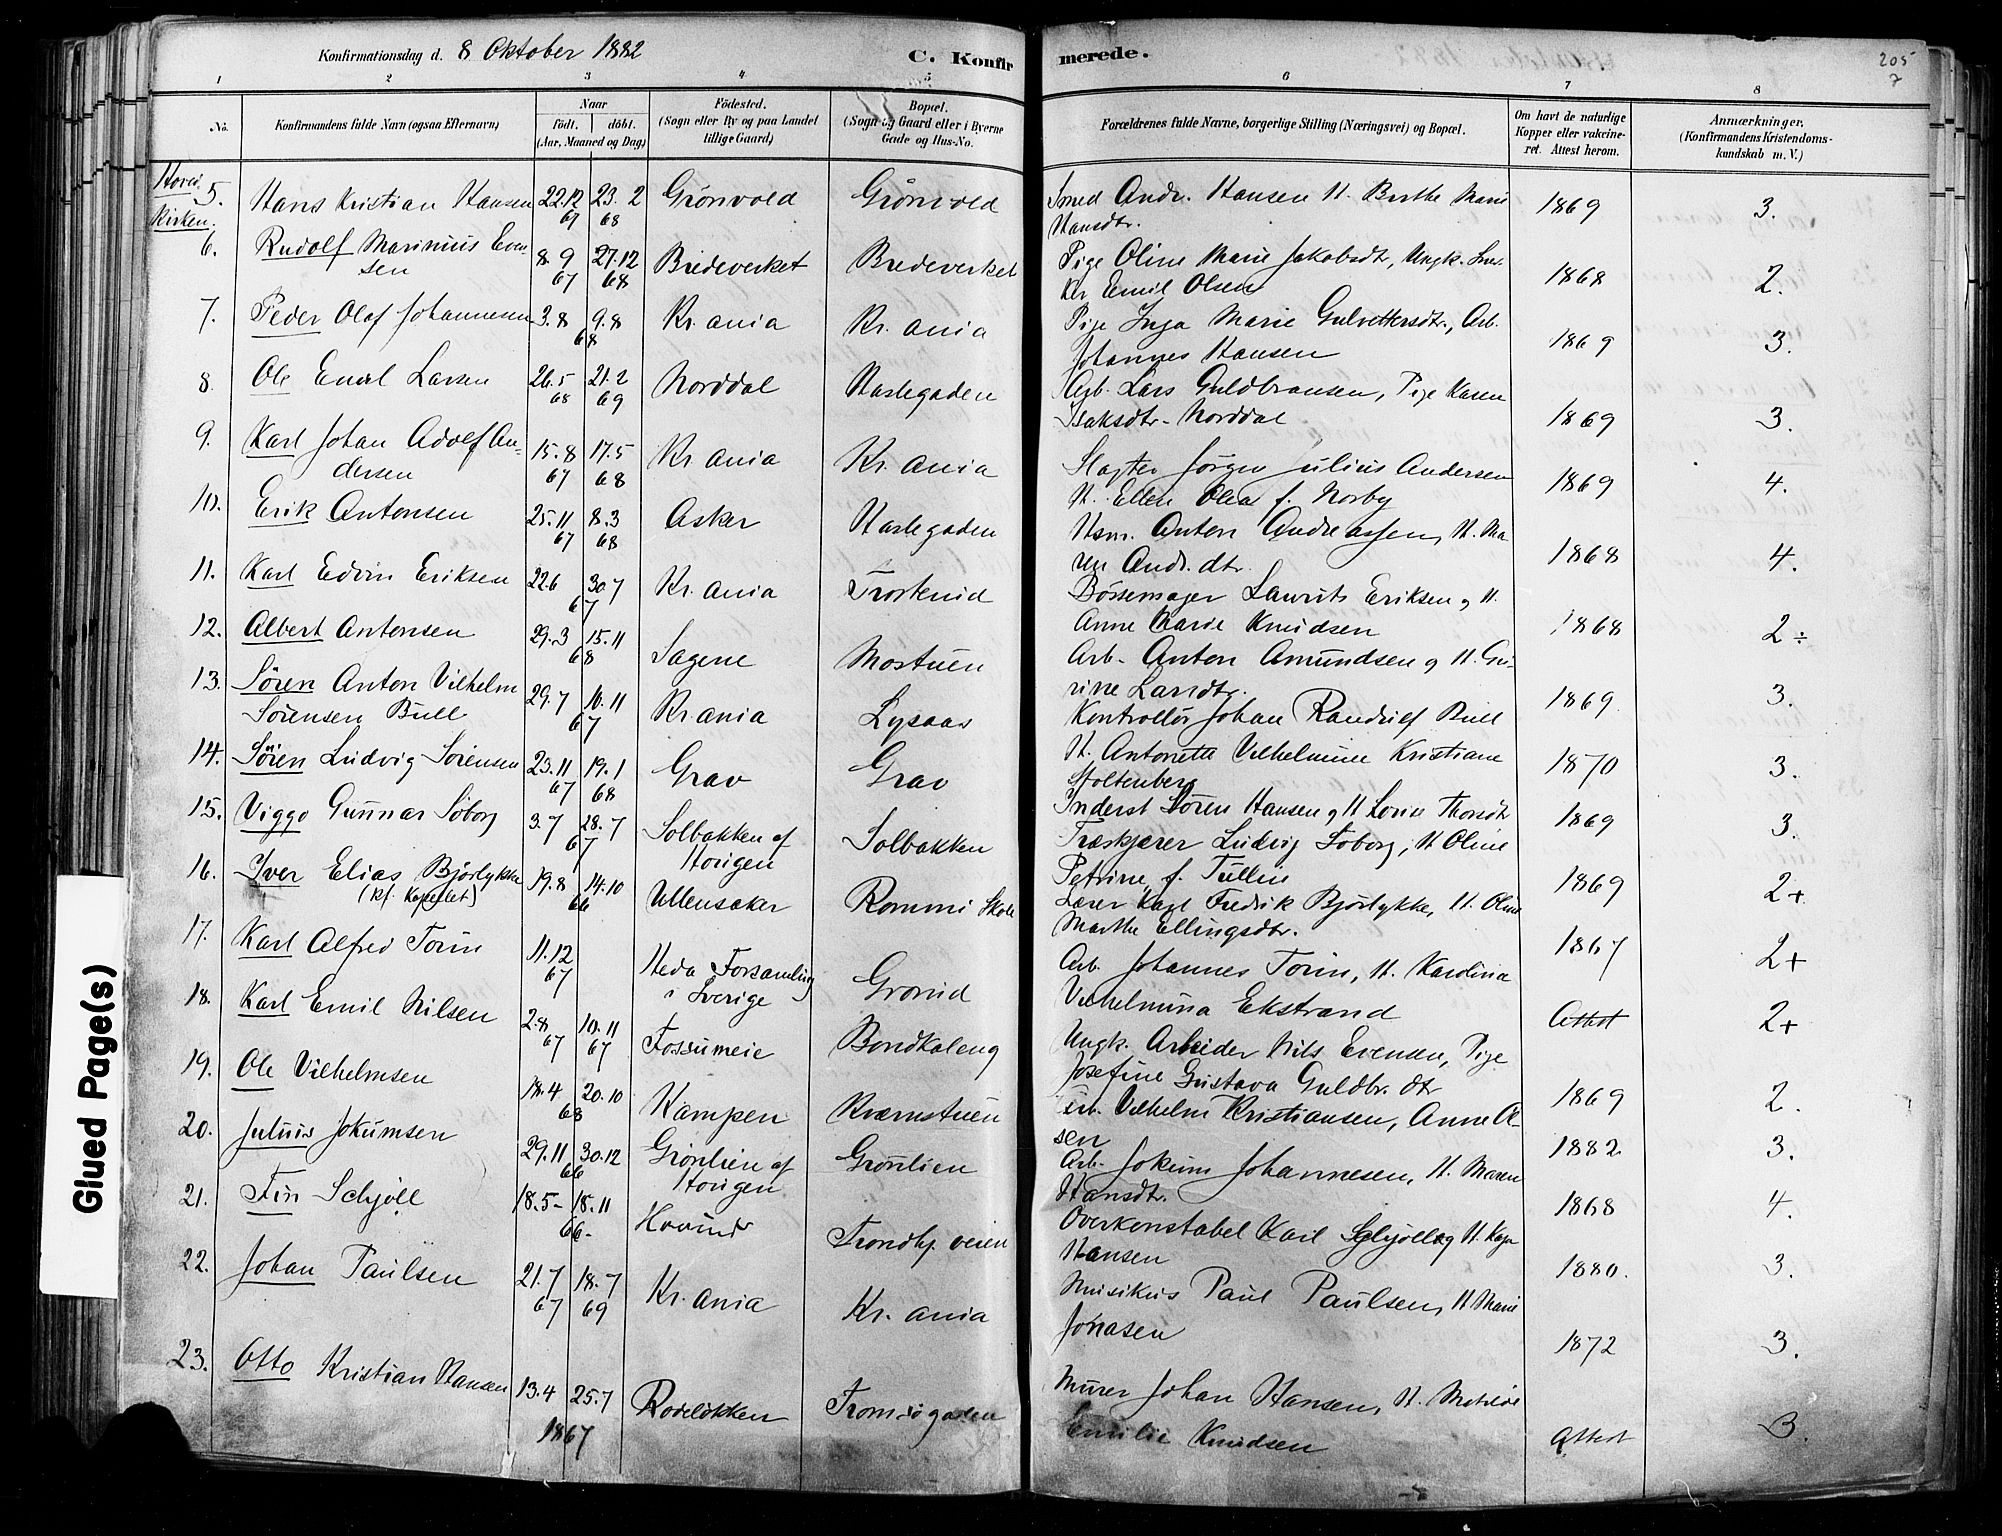 Konfirmationsdag d. 8 Oktober 1882
C. Konfir
merede.
205
7
1 2 3 4 5 6 7 8
No.
Konfirmandens fulde Navn (ogsaa Efternavn)
Naar
födt. döbt.
(Aar, Maaned og Dag)
Födested.
(Sogn eller By og paa Landet
tillige Gaard)
Bopæl.
(Sogn og Gaard eller i Byerne
Gade og Hus-No.
Forældrenes fulde Navne, borgerlige Stilling (Næringsvei) og Bopæl.
Om havt de naturlige
Kopper eller vakcine-
ret. Attest herom.
Anmærkninger.
(Konfirmandens Kristendoms-
kundskab m. V.)
Hoved
Kirken.
5. Hans Kristian Hansen 22.12 67 23.2 68 Grönvold Grönvold Smed Andr. Hansen H. Berthe Marie
Hansdtr. 1869 3.
6. Rudolf Marinius Even-
sen 8.9 67 27.12 68 Bredeverket Bredeverket Pige Oline Marie Jakobsdtr, Ungk. Sne-
ker Emil Olsen 1868 2.
7. Peder Olaf Johannesen 3.8 9.8 68 Kr.ania Kr.ania Pige Inga Marie Gulvettersdtr., Arb.
Johannes Hansen 1869 3.
8. Ole Emil Larsen 26.5 68 21.2 69 Norddal Haslegaden Arb. Lars Guldbransen, Pige Karen
Isaksdtr. Norddal 1869 3.
9. Karl Johan Adolf An-
dersen 15.8 67 17.5 68 Kr.ania Kr.ania Slagter Jörgen Julius Andersen
H. Ellen Olea f. Norby 1869 4.
10. Erik Antonsen 25.11 67 8.3 68 Asker Haslegaden Hsm. Anton Andreassen, H. Ma-
ren Andr.dtr. 1868 4.
11. Karl Edvin Eriksen 22.6 30.7 67 Kr.ania Trosterud Börsemager Laurits Eriksen og H.
Anne Marie Knudsen 1868 2÷
12. Albert Antonsen 29.3 15.11 68 Sagene Mostuen Arb. Anton Amundsen og H. Gu-
rine Larsdtr. 1869 3.
13. Sören Anton Vilhelm
Sörensen Bull 29.7 10.11 67 Kr.ania Lysaas Kontrollör Johan Randulf Bull
H. Antonette Vilhelmine Kristiane
Stoltenberg 1870 3.
14. Sören Ludvig Sörensen 23.11 67 19.1 68 Grav Grav Inderst Sören Hansen og H Lovise Thorsdtr 1869 3.
15. Viggo Gunnar Söborg 3.7 28.7 67 Solbakken af
Hougen Solbakken Træskjærer Ludvig Söborg, H Oline
Petrine, f. Tullin 1869 2+
16. Iver Elias Björlykke
(Kf. Kapellet) 19.8 14.10 66 Ullensaker Rommi Skole Lærer Karl Fredrik Björlykke, H. Oline
Marthe Ellingsdtr. 1867 2+
17. Karl Alfred Torin 11.12 67 Heda Forsamling
i Sverige Grorud Arb. Johannes Torin, H. Karolina
Vilhelmina Ekstrand Attest 2+
18. Karl Emil Nilsen 2.8 67 10.11 67 Fossumeie Bondkaleng Ungk. Arbeider Nils Evensen, Pige
Josefine Gustava Guldbr.dtr 1869 2.
19. Ole Vilhelmsen 18.4 20.10 68 Kampen Kværnstuen Arb. Vilhelm Kristiansen, Anne Ol-
sen 1882 3.
20. Julius Jokumsen 29.11 30.12 66 Grönlien af
Hougen Grönlien Arb. Jokum Johannesen, H. Maren
Hansdtr. 1868 4.
21. Fin Schjöll 18.5 18.11 66 Hovind Trondhj. veien Overkonstabel Karl Schjöll og H. Kaja
Hansen 1880. 3.
22. Johan Paulsen 21.7 67 18.7 69 Kr.ania Kr.ania Musikus Paul Paulsen, H Marie
Jonasen 1872 3.
23. Otto Kristian Hansen 13.4 25.7 1867 Rodelökken Tromsögaden Murer Johan Hansen, H. Matilde
Emilie Knudsen Attest 3.
Glued Page(s)